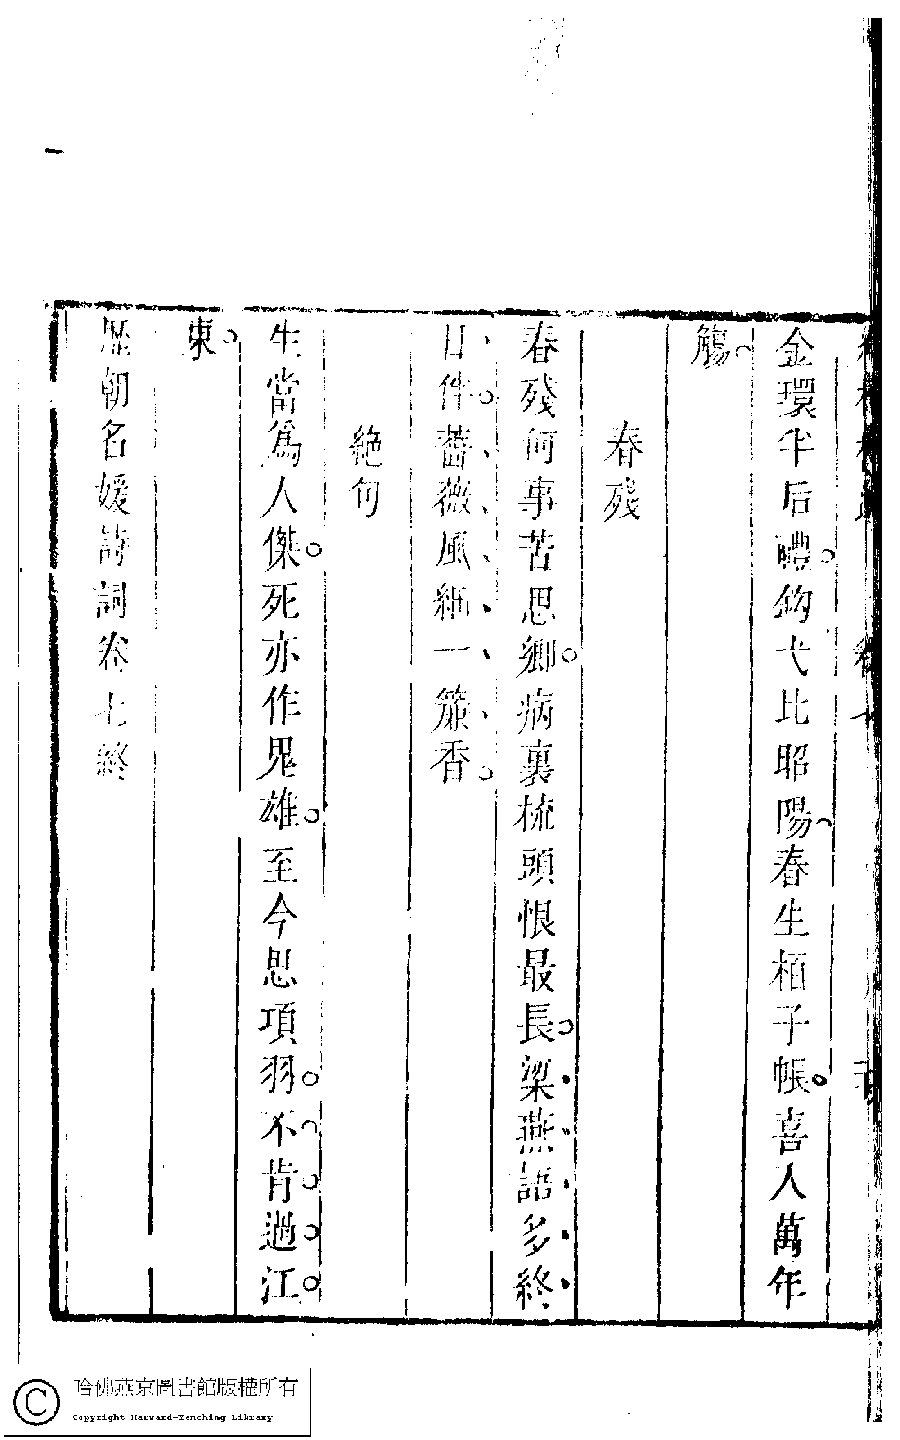 金環半后禮鈎弋比昭陽春生栢子帳喜人萬年
觴
春殘
春殘何事苦思鄉病裏梳頭恨最長梁燕語多終
日伴薔薇風細一簾香
絶句
生當爲人傑死亦作鬼雄至今思項羽不肯過江
東
歷朝名媛詩詞卷七終
哈佛燕京圖書館版權所有
Copyright Harvard-Yenching Library